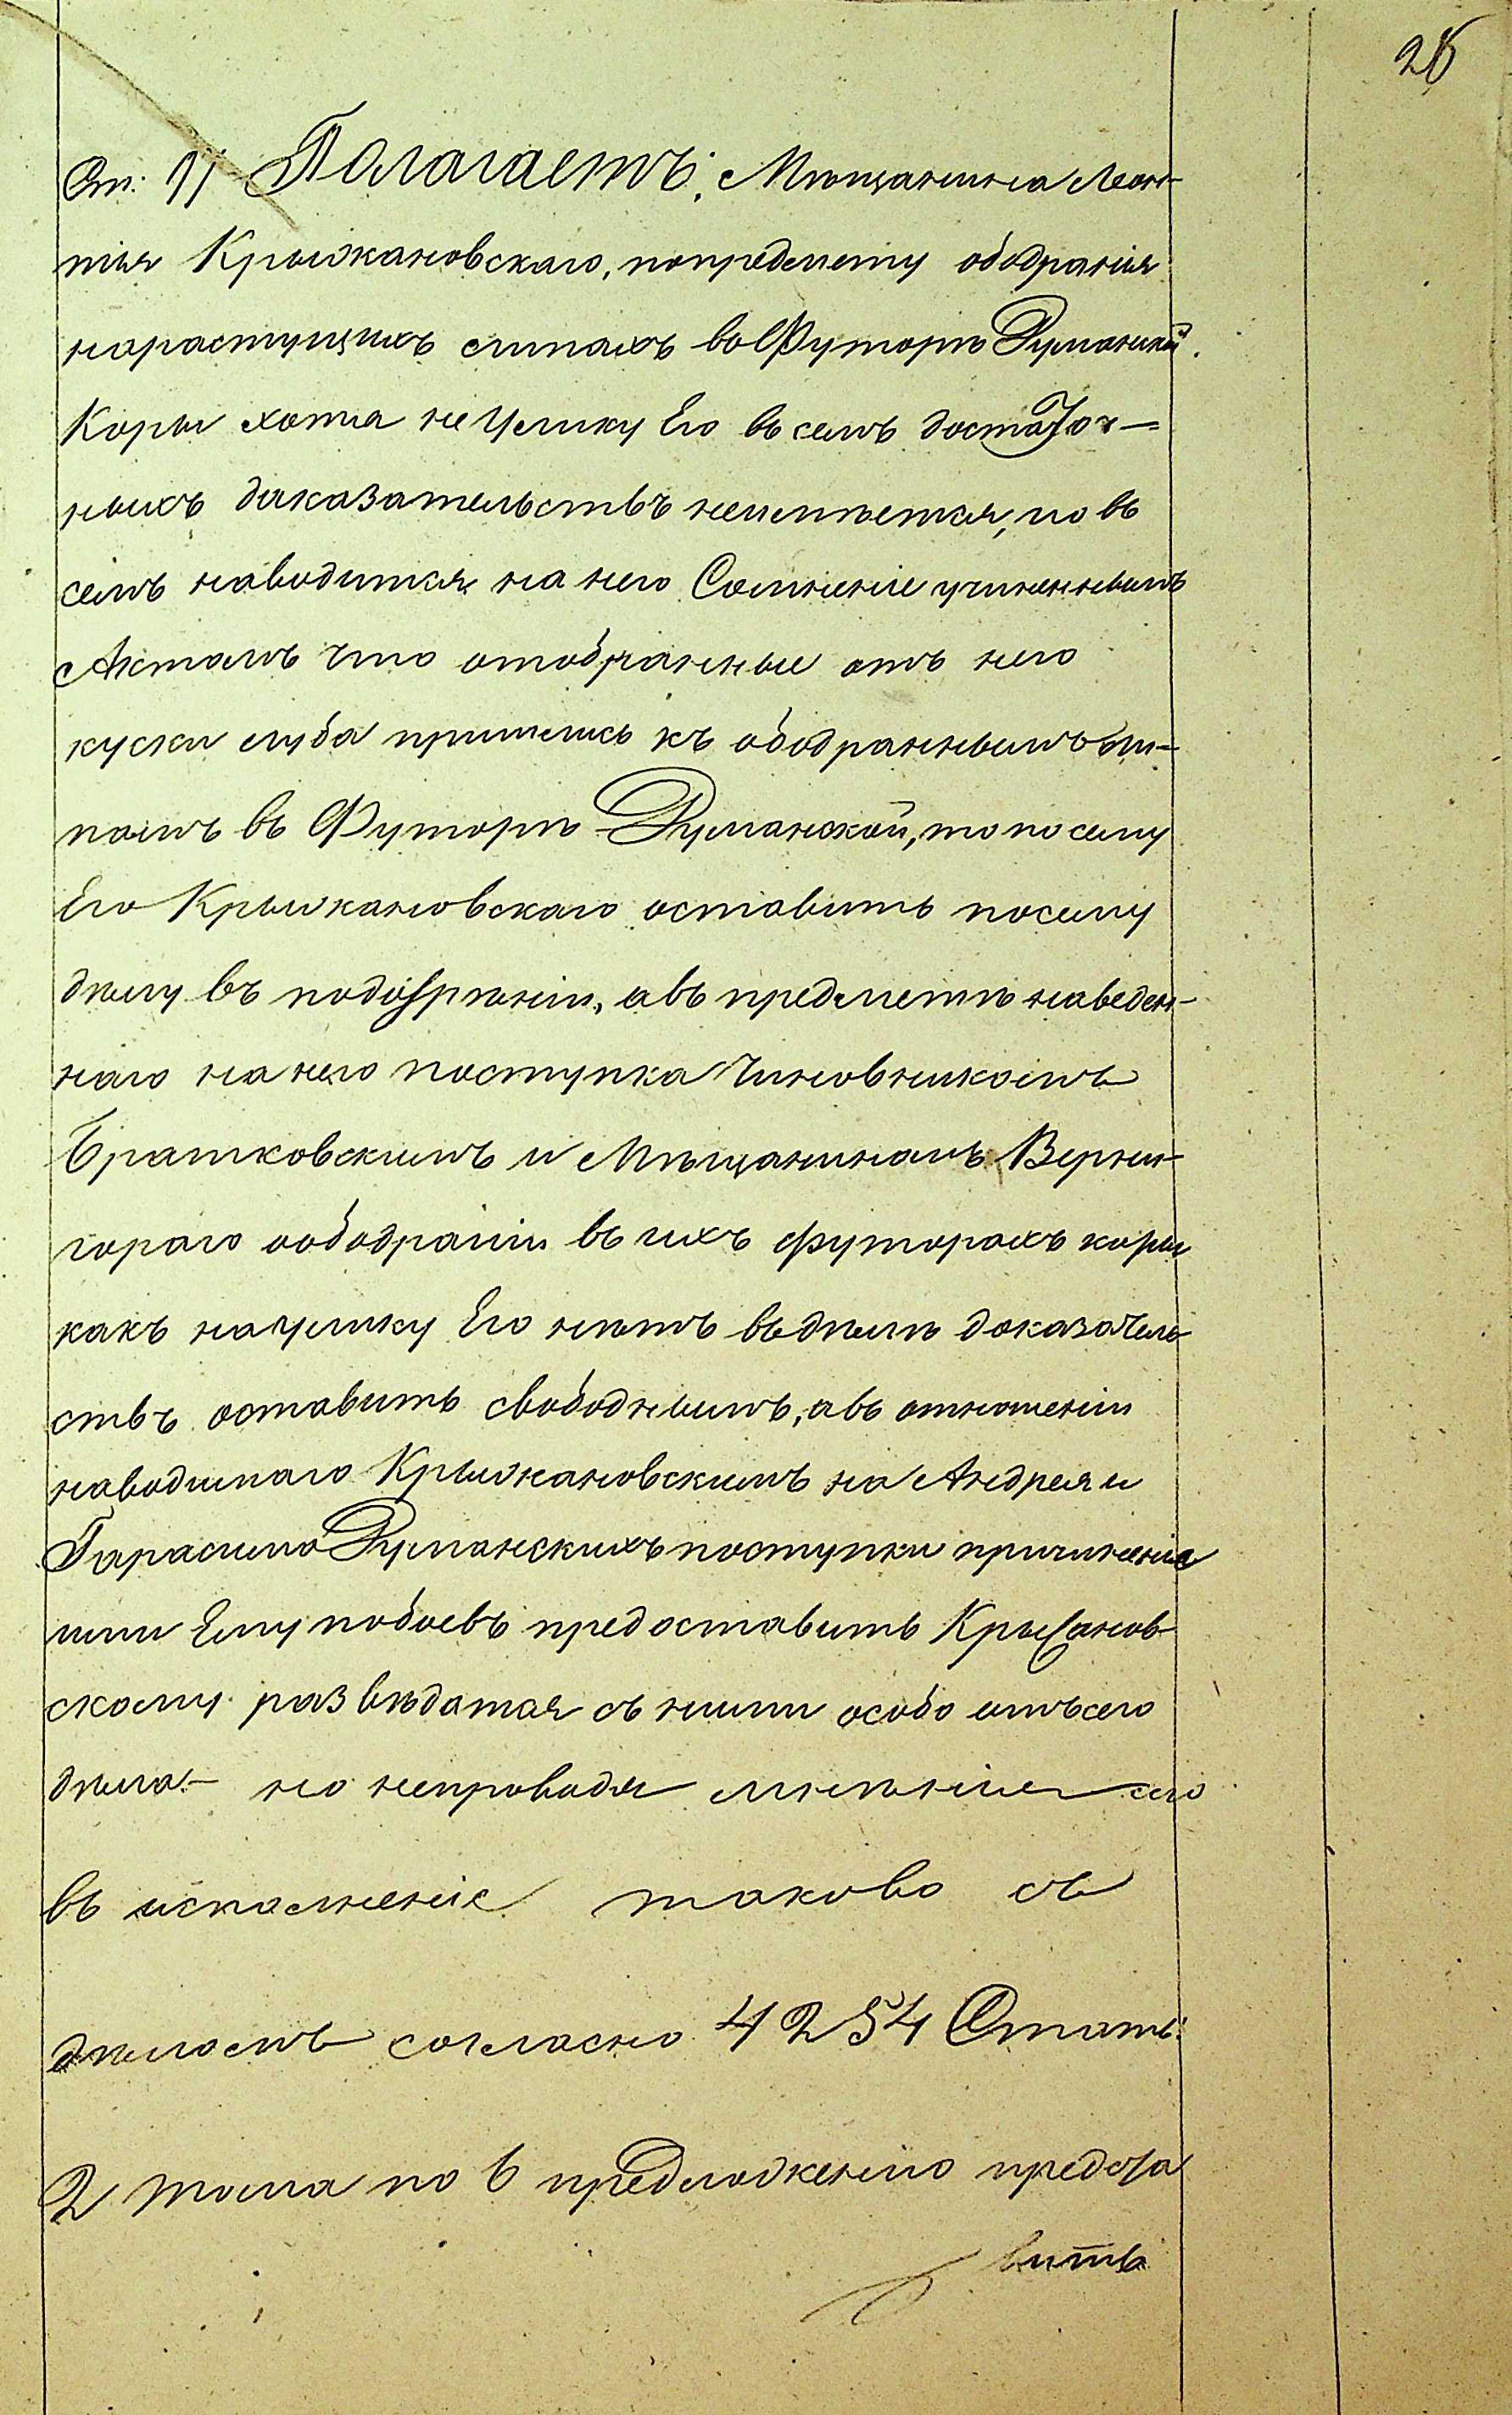 26
Ст: 11 Полагаетъ: Мѣщанина Леон-
тія Крыжановскаго, попредмету ободранія
нарастущихъ липахъ въ Футорѣ Думанской
Коры хотя неУлику Его въ семъ достаточ-
ныхъ даказательствъ неимѣется, но въ
семъ наводится на него Сомненіе учиненнымъ
Актомъ что отобранные отъ него
куски луба пришлись къ ободраннымъ ли-
памъ въ Футорѣ Думанской, то по сему
Его Крыжановскаго оставить посему
дѣлу въ подозрѣніи, авъ предметѣ наведен-
наго на него поступка Чиновникомъ
Братковскимъ и Мѣщаниномъ Верни-
гораго оободраніи въ ихъ футорахъ коры
какъ наУлику Его нѣтъ въ дѣлѣ доказатель
ствъ оставить свободнымъ, авъ отношеніи
наводимаго Крыжановскимъ на Андрея и
Гарасима Думанскихъ поступки причиненіе
ими Ему побоевъ предоставить Крыжанов
скому развѣдатся съ ними особо отъсего
дѣла – но непроводя мнѣніе сіо
въ исполненіе таково съ
дѣломъ согласно 4254 Стать:
2 тома по 6 предлодженію предста
вить